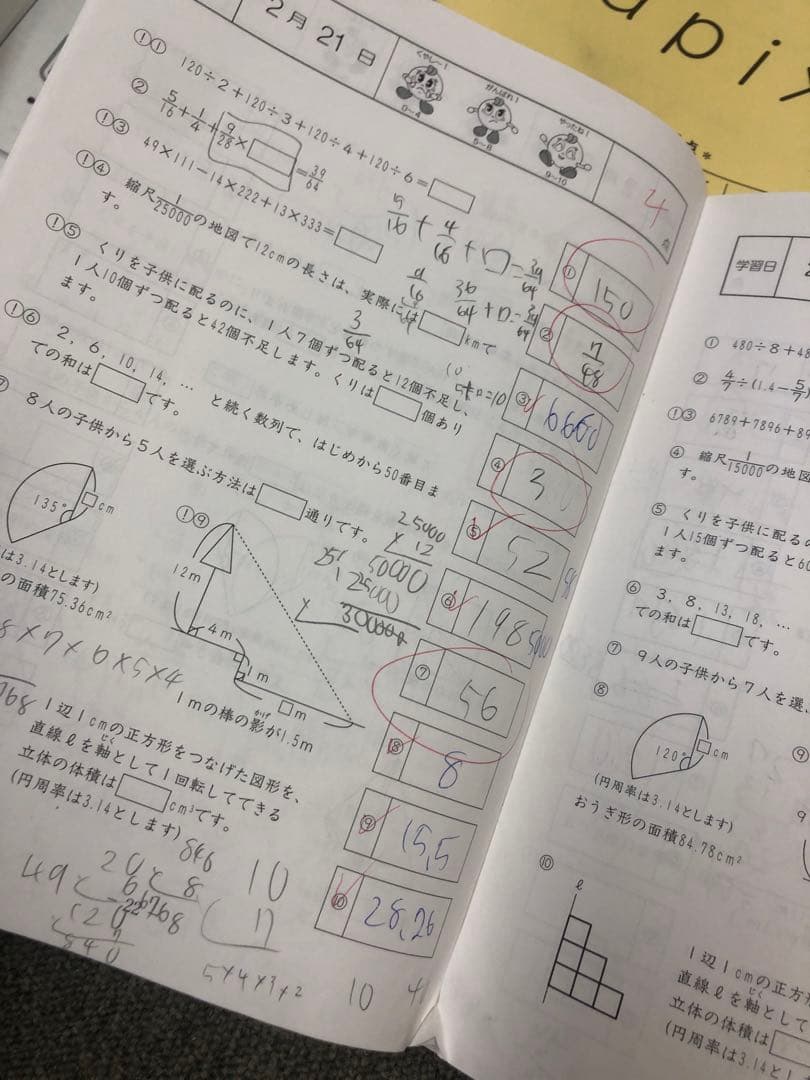 apix
2月21日
くやしー!
0~4
がんばれ!
5~8
やったね!
9~10
4
点
① 120÷2+120÷3+120÷4+120÷6=□
② 5/16+1/4+9/28×□=39/64
③ 49×111-14×222+13×333=□
④ 縮尺1/25000の地図で12cmの長さは、実際には□kmで
す。
⑤ くりを子供に配るのに、1人7個ずつ配ると12個不足し、
1人10個ずつ配ると42個不足します。くりは□個あり
ます。
⑥ 2, 6, 10, 14, … と続く数列で、はじめから50番目ま
での和は□です。
8人の子供から5人を選ぶ方法は□通りです。
135°
□cm
は3.14とします)
の面積75.36cm²
①⑨
12m
4m
1m
□m
1mの棒の影が1.5m
かげ
1辺1cmの正方形をつなげた図形を、
直線ℓを軸として1回転してできる
じく
立体の体積は□cm³です。
(円周率は3.14とします)
① 150
② 7/48
③ 6660
④ 3
⑤ 52
⑥ 198
⑦ 56
⑧ 8
⑨ 15.5
⑩ 28.26
25000
×12
50000
25000
300000
8×7×6×5×4
5×4×3×2
10
学習日
① 480÷8+48
② 4/7÷(1.4-5/
①③ 6789+7896+89
④ 縮尺1/15000の地図
す。
⑤ くりを子供に配るの
1人15個ずつ配ると60
ます。
⑥ 3, 8, 13, 18, …
での和は□です。
⑦ 9人の子供から7人を選
⑧
120°
□cm
(円周率は3.14とします)
おうぎ形の面積84.78cm²
⑨
⑩
ℓ
1辺1cmの正方形
直線ℓを軸として
じく
立体の体積は□
(円周率は3.14とし